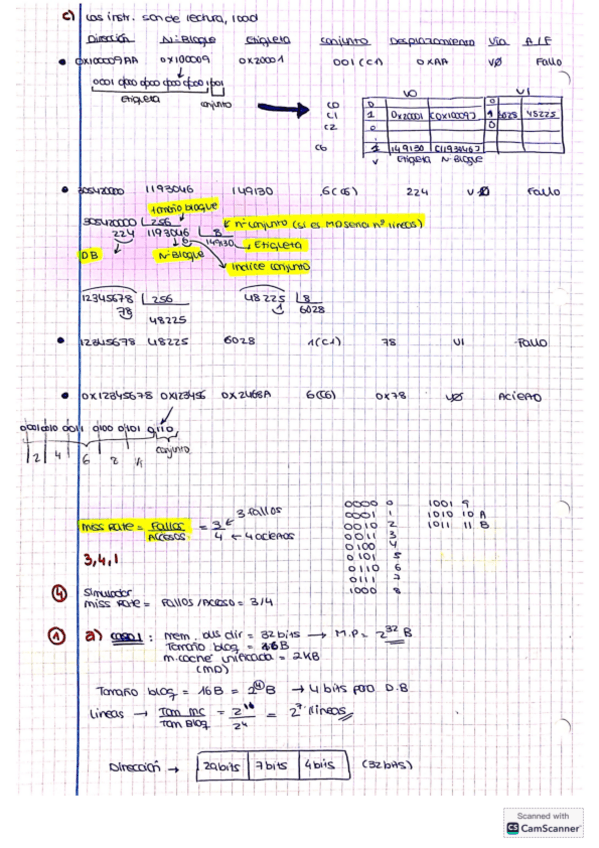 c) Las instr. son de lectura, load
Dirección N.Bloque Etiqueta conjunto Desplazamiento Vía A/F
0x100009AA 0x100009 0x20001 001(C1) 0xAA V0 Fallo
0001 0000 0000 0000 0000 1001
Etiqueta conjunto
V0 V1
C0 0 0
C1 1 0x20001 (0x100009) 1 6028 48225
C2 0 0
C6 1 149130 (1193046)
V Etiqueta N.Bloque
305420000 1193046 149130 6(C6) 224 V0 Fallo
tamaño bloque
305420000 256 nºconjunto (si es MD seria nº lineas)
224 1193046 8
6 149130 Etiqueta
DB N.Bloque
indice conjunto
12345678 256 48225 8
78 1 6028
48225
12345678 48225 6028 1(C1) 78 V1 Fallo
0x12345678 0x123456 0x2468A 6(C6) 0x78 V0 Acierto
0001 0010 0011 0100 0101 0110
2 4 6 conjunto
3 fallos
miss Rate = Fallos / Accesos = 3/4 ← 4 aciertos
0000 0 1001 9
0001 1 1010 10 A
0010 2 1011 11 B
0011 3
0100 4
0101 5
0110 6
0111 7
1000 8
3,4,1
4 Simulador
miss Rate = Fallos/Acceso = 3/4
1 a) caso 1: mem. bus dir = 32 bits → M.P = 2^32 B
Tamaño bloq = 16B
m.caché unificada = 2KB
(MD)
Tamaño bloq = 16B = 2^4 B → 4 bits para D.B
Lineas → Tam MC / Tam Bloq = 2^4 = 2^7 lineas
Dirección → 21bits 7bits 4bits (32bits)
Scanned with
CS CamScanner